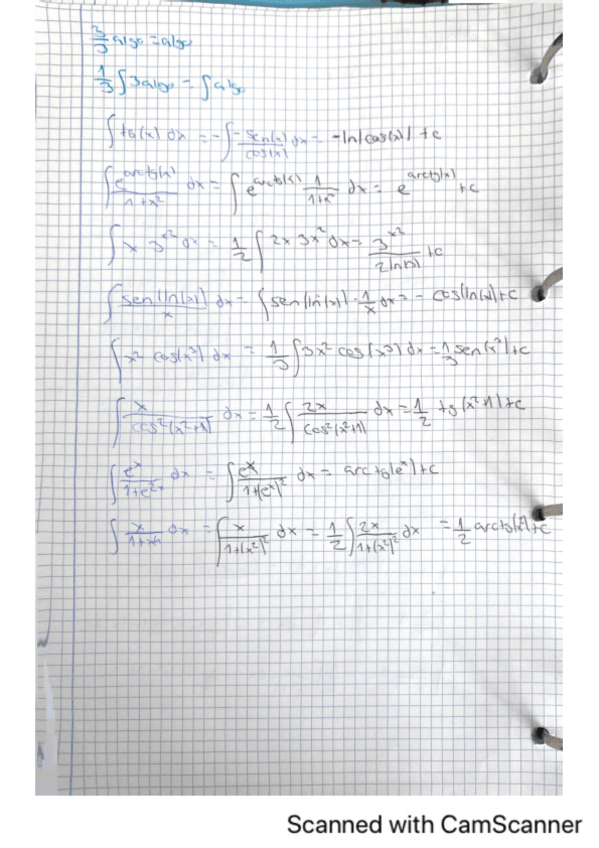 3/3 algo = algo
1/3 ∫ 3 algo = ∫ algo
∫ tg(x) dx = -∫ -sen(x)/cos(x) dx = -ln|cos(x)| + c
∫ e^arctg(x)/1+x² dx = ∫ e^arctg(x) 1/1+x² dx = e^arctg(x) + c
∫ x 3^x² dx = 1/2 ∫ 2x 3x² dx = 3^x²/2ln(3) + c
∫ sen(ln(x))/x dx = ∫ sen(ln(x)) · 1/x dx = - cos(ln(x)) + c
∫ x² cos(x³) dx = 1/3 ∫ 3x² cos(x³) dx = 1/3 sen(x³) + c
∫ x/cos²(x²+1) dx = 1/2 ∫ 2x/cos²(x²+1) dx = 1/2 tg(x²+1) + c
∫ e^x/1+e^2x dx = ∫ e^x/1+(e^x)² dx = arctg(e^x) + c
∫ x/1+x⁴ dx = ∫ x/1+(x²)² dx = 1/2 ∫ 2x/1+(x²)² dx = 1/2 arctg(x²) + c
Scanned with CamScanner